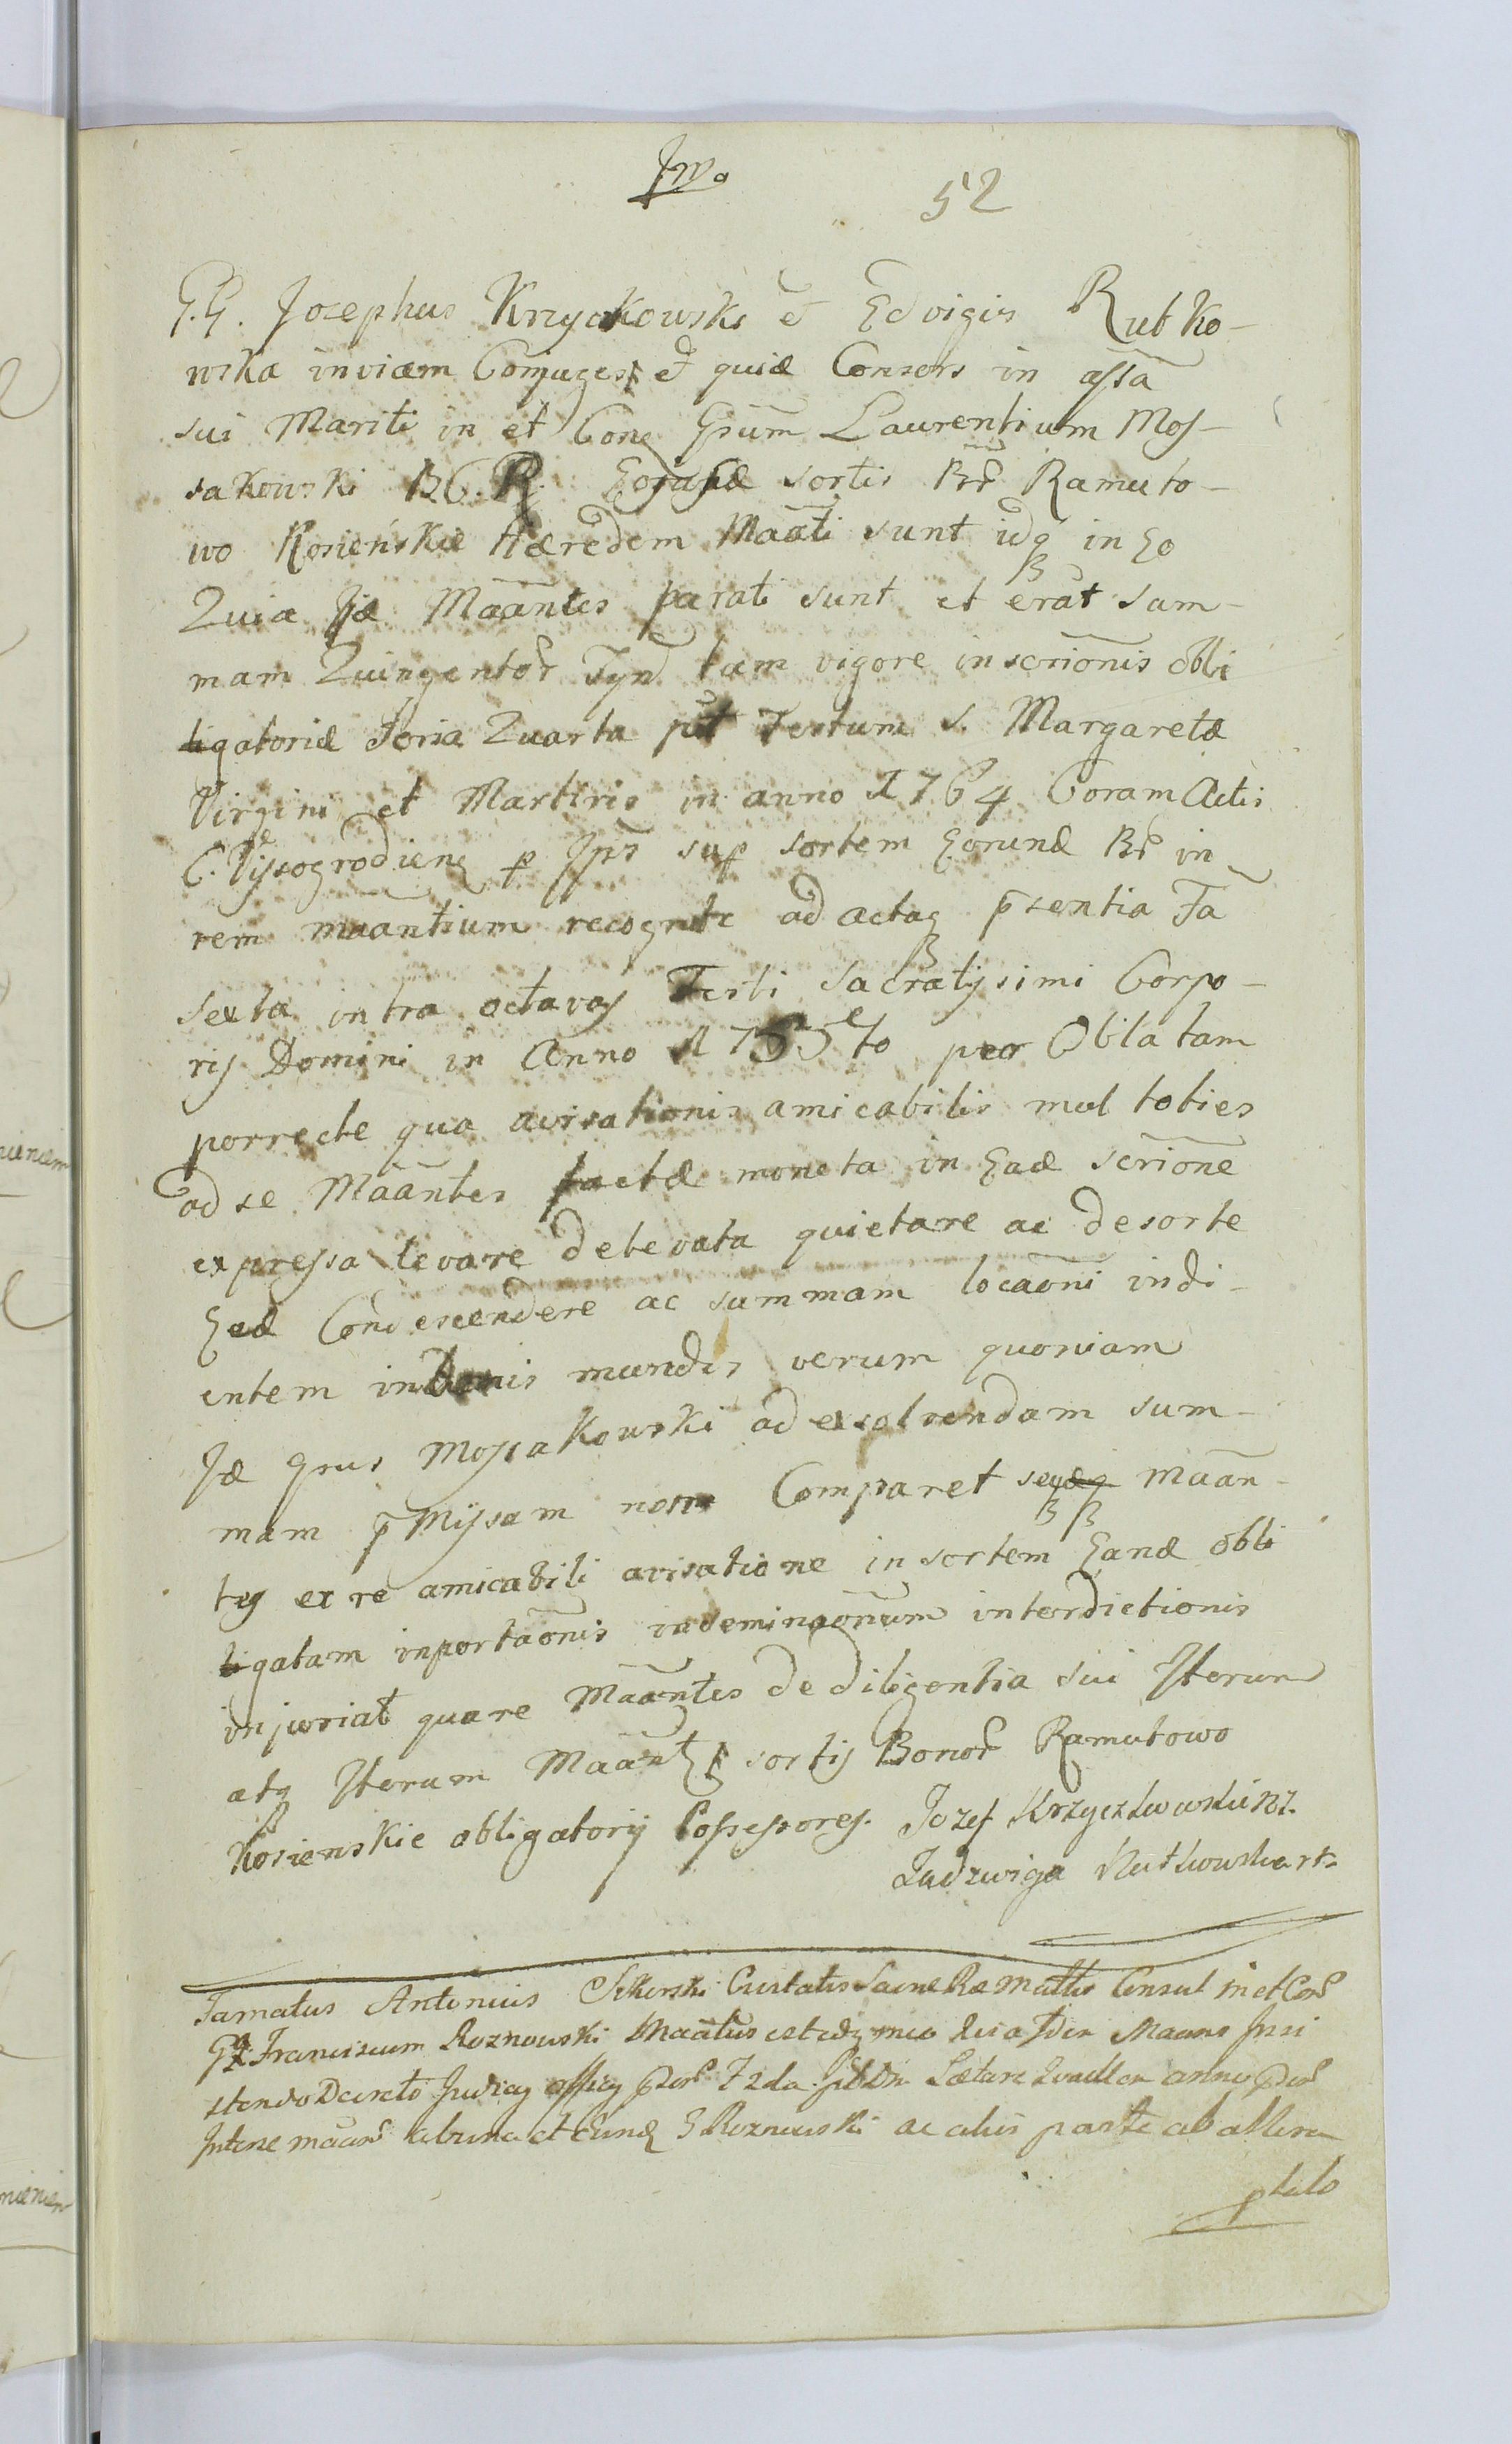 52
G.G. Josephus Krzyckowski et Edvigis Rutko-
wska inviæm Conjuges et quiæ Consors in assã
sui Mariti in et Conõ Gsum Laurentium Mos-
sakowski B.C.R. sortis Bnr Ramuto-
wo Kosieńskie Hæredem Maãti sunt idq in Eo
Quia Jidæ Maãntes parati sunt et erãt sum-
mam Quingentor Tyn tam vigore inscriõnis obli
gatoriæ Feria Quarta pt Festum S. Margaretæ
Virgini et Martiris in anno 1764 Coram Actis
C. Vissogrodieng p Ipõs sup sortem Eorund Br in
rem maantium recognite ad actaq p̃sentia Fã
sexta intra octavas Festi Sacratissimi Corpo-
ris Domini in Anno 1765to per Oblatam
porrecte qua avisationis amicabilis mul toties
ad se Maãntes factæ moneta in Ead scriõne
expressa levare de levata quietare ac de sorte
Ead Condescendere ac summam locaõni indi-
entem in Bonis mundis verum quoniam
Idē Gsus Mossakowski ad exsolvendam sum-
mam p̃missam non Comparet Maãn-
tes ex re amicabili avisatione in sortem Eand obli
gatam inportaõnis indeminaonum interdictionis
injuriat quare Maãntes de diligentia sui Iterum
atq Iterum Maãnt sortis Bonor Ramutowo
Kosienskie obligatorij Possessores. Jozef Krzyczkowski
Jadzwiga Rutkowska
Famatus Antonius Sikorski Civitatis Sacræ Ræ Mattis Consul in et Con
G Franciscum Roznowski Maãtus est idq in eo quia Iden Maans Insi
stendo Decreto Judicy officy
ab una et Eund G Roznowski ac aliis parte ab altera
plato